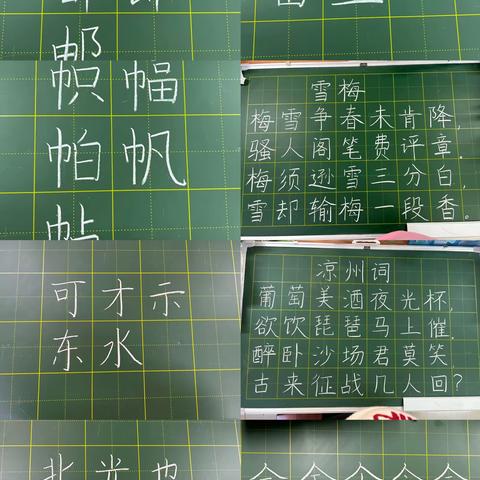 帜 幅
帕 帆
雪梅
梅雪争春未肯降，
骚人阁笔费评章。
梅须逊雪三分白，
雪却输梅一段香。
可才示
东水
凉州词
葡萄美酒夜光杯，
欲饮琵琶马上催。
醉卧沙场君莫笑
古来征战几人回?